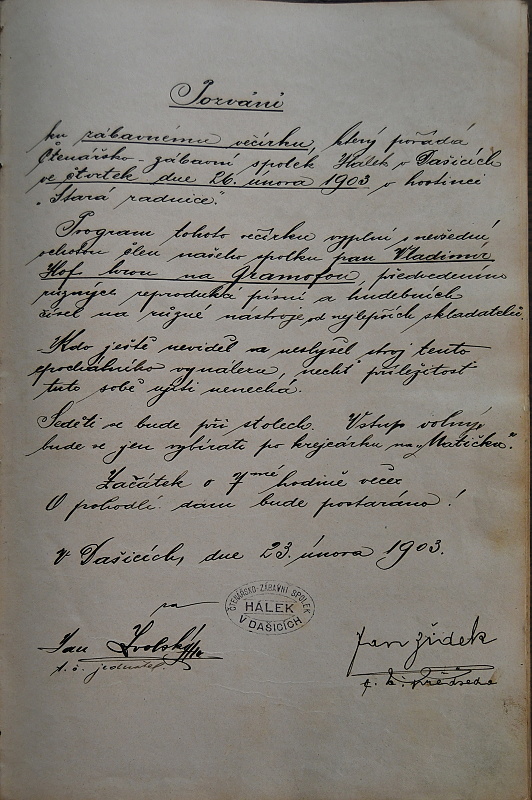 Pozvání
ku zábavnému večírku, který pořádá
Čtenářsko-zábavní spolek Hálek v Dašicích
ve čtvrtek dne 26. února 1903 v hostinci
„Stará radnice“.
Program tohoto večírku vyplní s nevšední
ochotou člen našeho spolku pan Vladimír
Hof hrou na Gramofon předvedením
různých reprodukcí písní a hudebních
čísel na různé nástroje od nejlepších skladatelů.
Kdo ještě neviděl a neslyšel stroj tento
epochálního vynálezu, nechť příležitost
tuto sobě ujíti nenechá.
Seděti se bude při stolech. Vstup volný,
bude se jen vybírati po krejcárku na „Matičku“.
Začátek o 7mé hodině večer
O pohodlí dam bude postaráno!
V Dašicích, dne 23. února 1903.
ČTENÁŘSKO-ZÁBAVNÍ SPOLEK
HÁLEK
V DAŠICÍCH
Jan Zvolský
t. č. jednatel.
Jan Židek
t. č. předseda